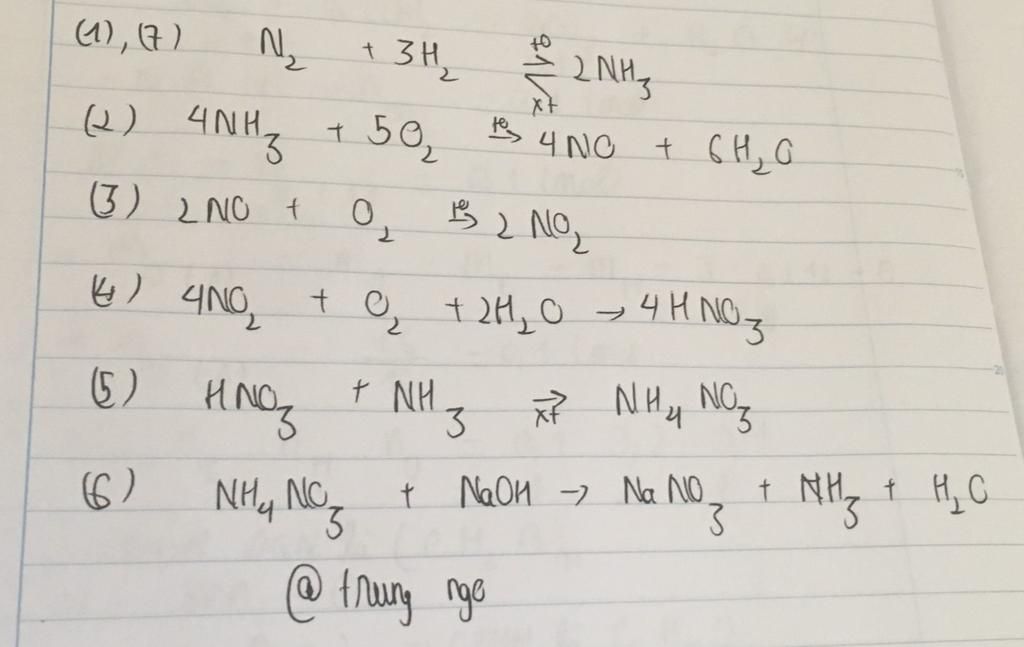 (1), (7) N₂ + 3H₂ ⇌ t° xt 2NH₃
(2) 4NH₃ + 5O₂ t° → 4NO + 6H₂O
(3) 2NO + O₂ t° → 2NO₂
(4) 4NO₂ + O₂ + 2H₂O → 4HNO₃
(5) HNO₃ + NH₃ → xt NH₄NO₃
(6) NH₄NO₃ + NaOH → NaNO₃ + NH₃ + H₂O
@trung ngo